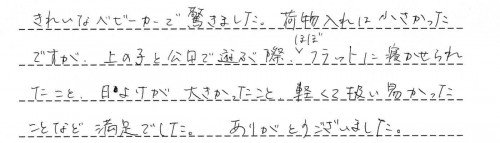 きれいなベビーカーで驚きました。荷物入れは小さかった
ですが、上の子と公園で遊ぶ際、ほぼフラットに寝かせられ
たこと、日よけが大きかったこと、軽くて扱い易かった
ことなど満足でした。 ありがとうございました。